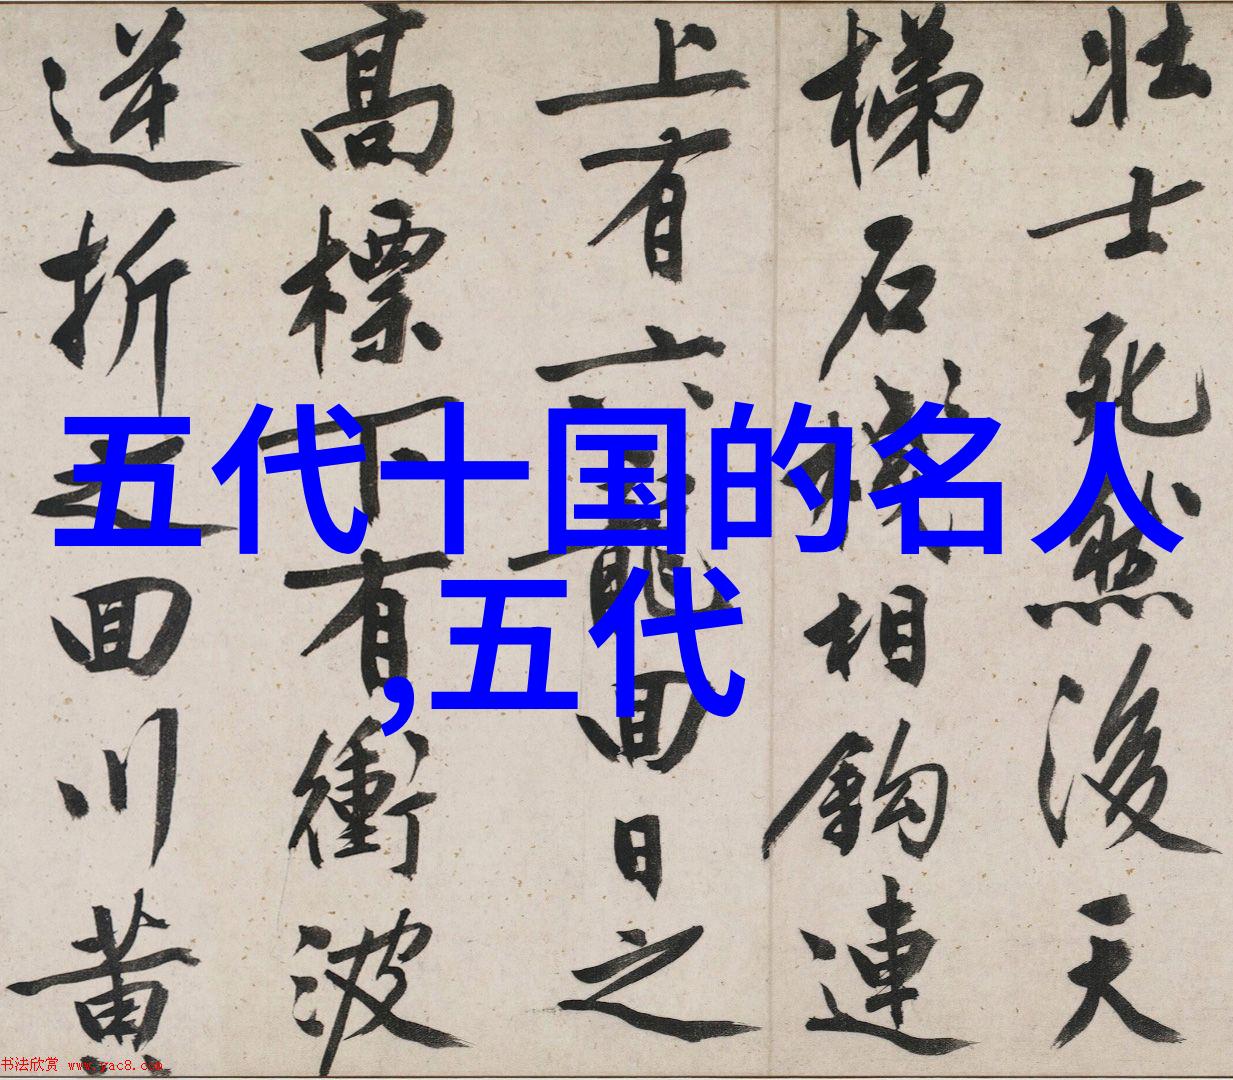 壯士死然後天
梯石棧相鈎連
上有六龍回日之
高標下有衝波
逆折之回川黃
五代十国的名人
,五代
书法欣赏 www.yac8.com